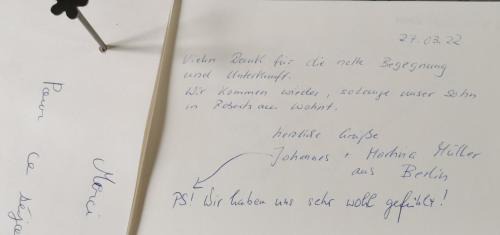 27.03.22
Vielen Dank für die nette Begegnung
und Unterkunft.
Wir kommen wieder, solange unser Sohn
in Robertsau wohnt.
herzliche Grüße
Johannes + Martina Müller
aus Berlin
PS! Wir haben uns sehr wohl gefühlt!
Merci
Pour ce séjou